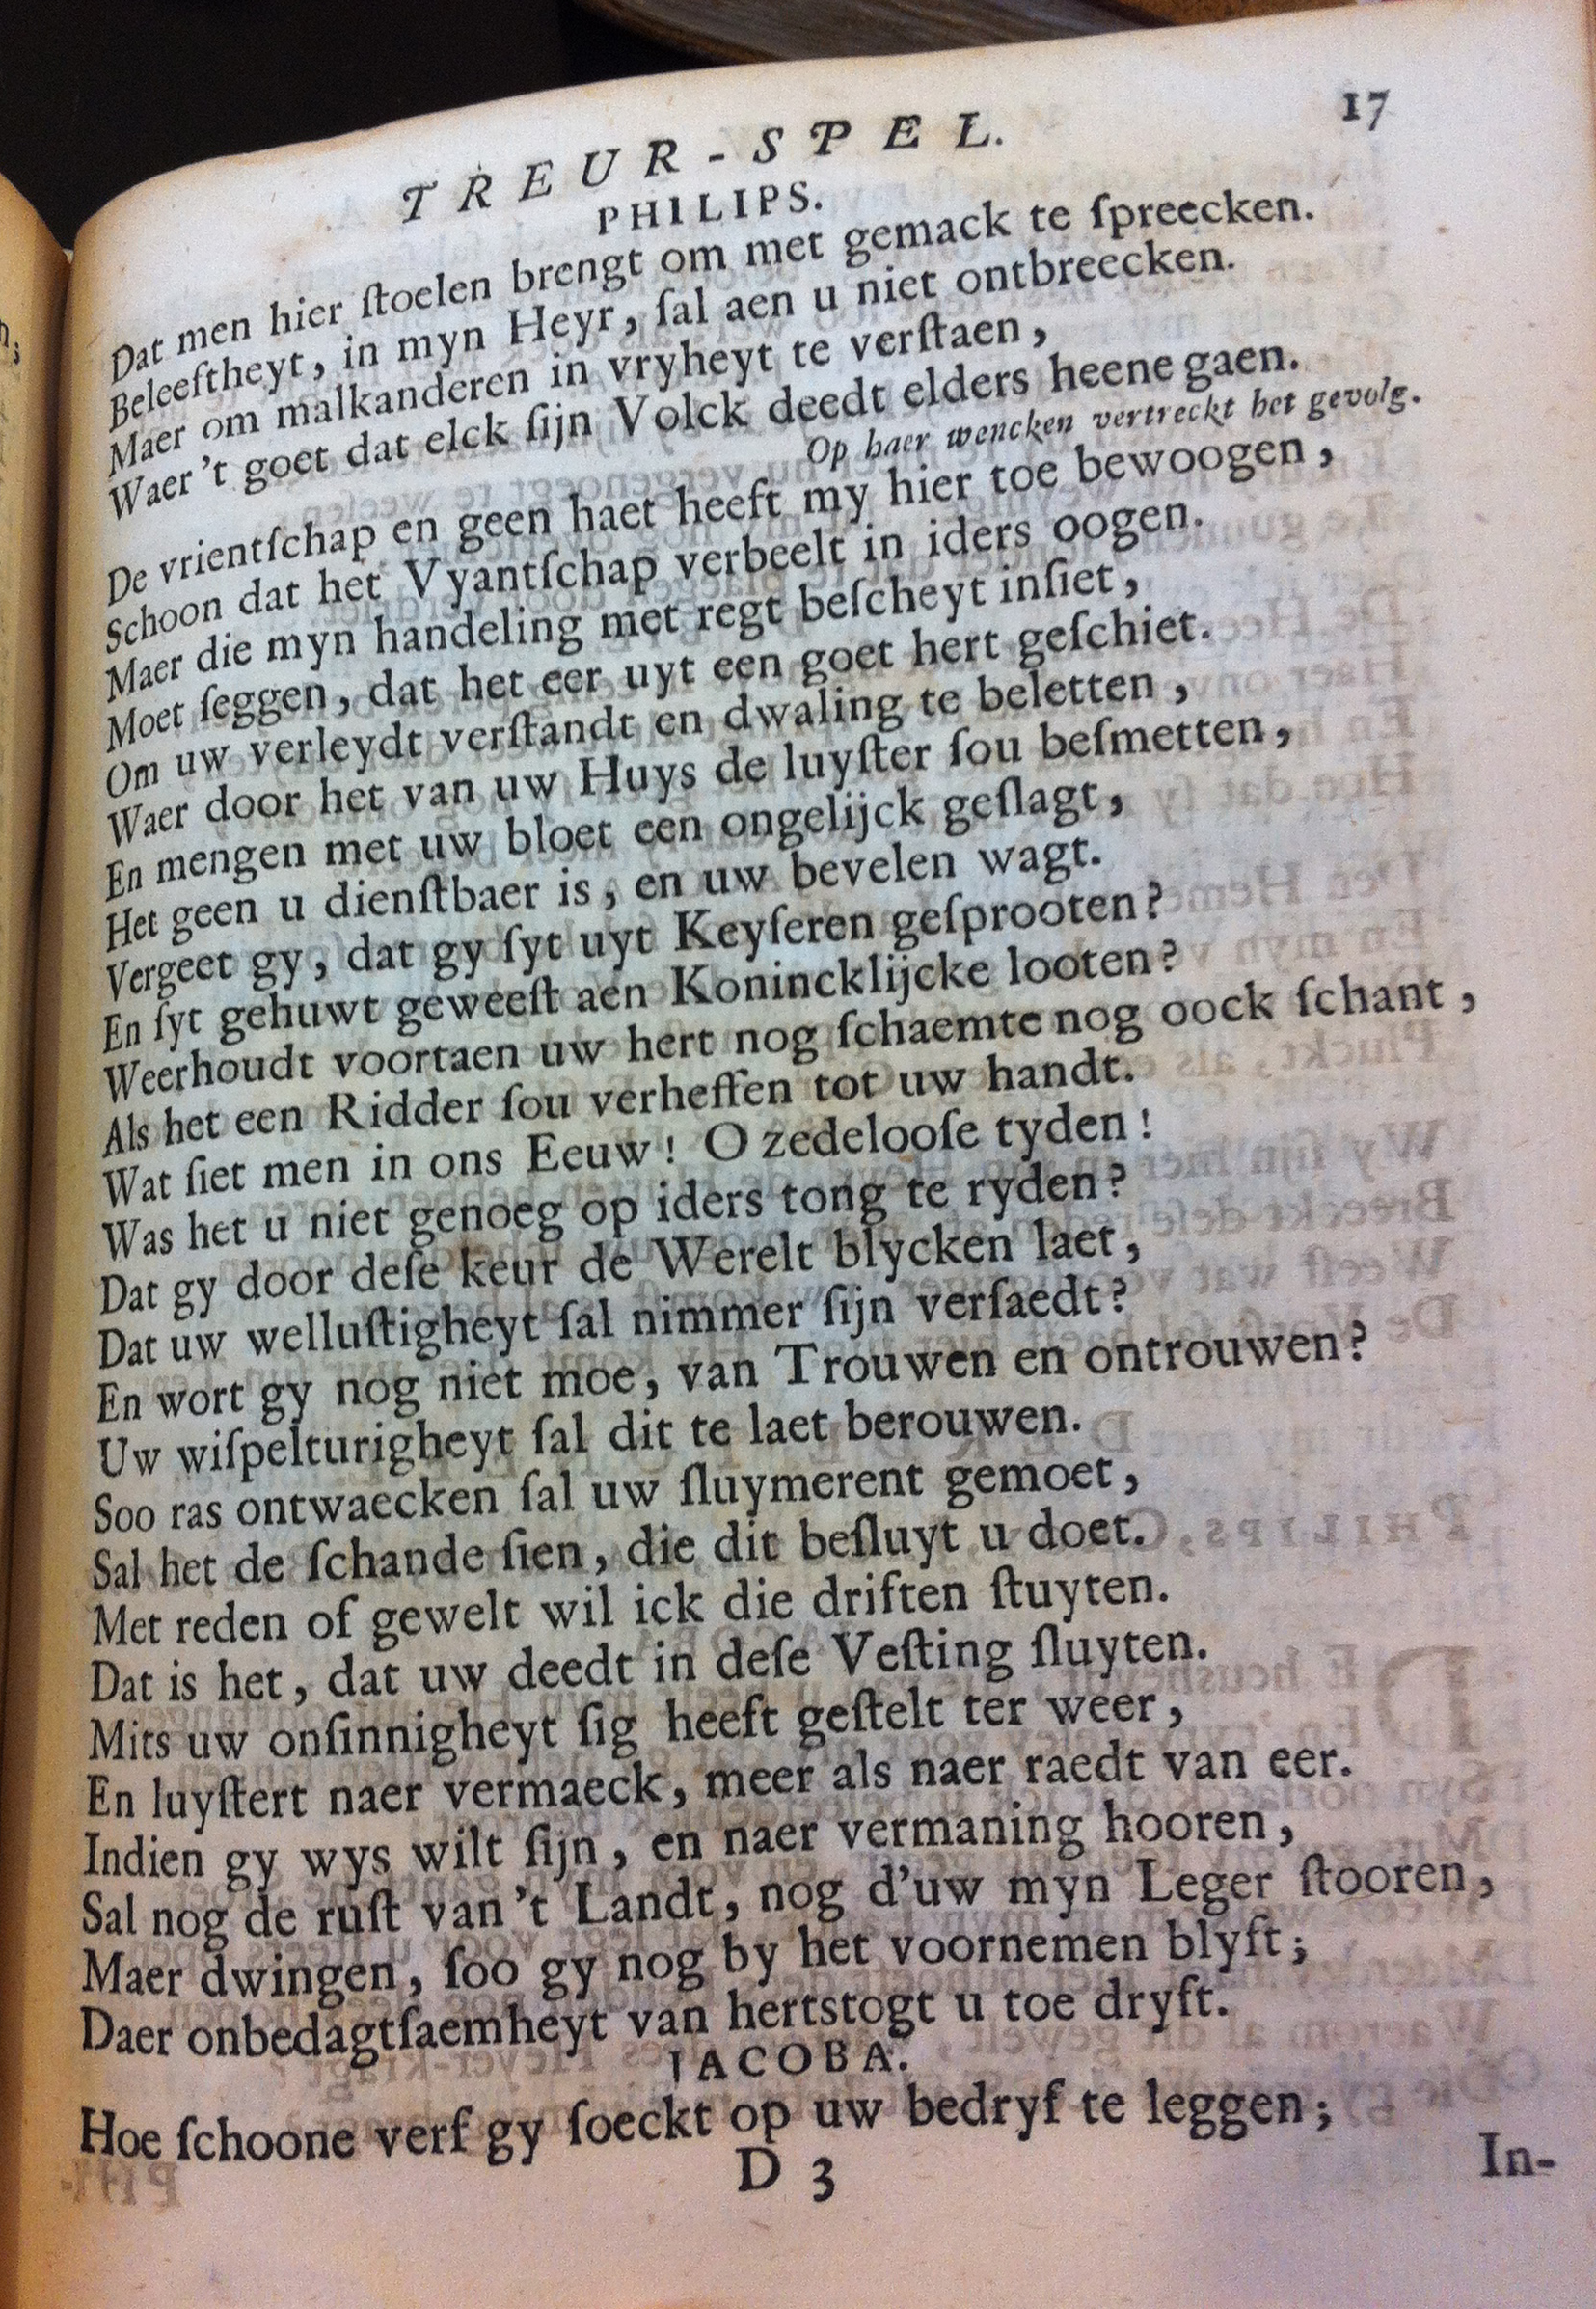 17
TREUR-SPEL.
PHILIPS.
Dat men hier ſtoelen brengt om met gemack te ſpreecken.
Beleeftheyt, in myn Heyr, ſal aen u niet ontbreecken.
Maer om malkanderen in vryheyt te verſtaen,
Waer 't goet dat elck ſijn Volck deedt elders heene gaen.
Op haer wencken vertreckt het gevolg.
De vrientſchap en geen haet heeft my hier toe bewoogen,
Schoon dat het Vyantſchap verbeelt in iders oogen.
Maer die myn handeling met regt beſcheyt inſiet,
Moet ſeggen, dat het eer uyt een goet hert geſchiet.
Om uw verleydt verſtandt en dwaling te beletten,
Waer door het van uw Huys de luyſter ſou beſmetten,
En mengen met uw bloet een ongelijck geſlagt,
Het geen u dienſtbaer is, en uw bevelen wagt.
Vergeet gy, dat gy ſyt uyt Keyſeren geſprooten?
En ſyt gehuwt geweeſt aen Konincklijcke looten?
Weerhoudt voortaen uw hert nog ſchaemte nog oock ſchant,
Als het een Ridder ſou verheffen tot uw handt.
Wat ſiet men in ons Eeuw! O zedelooſe tyden!
Was het u niet genoeg op iders tong te ryden?
Dat gy door deſe keur de Werelt blycken laet,
Dat uw welluſtigheyt ſal nimmer ſijn verſaedt?
En wort gy nog niet moe, van Trouwen en ontrouwen?
Uw wiſpelturigheyt ſal dit te laet berouwen.
Soo ras ontwaecken ſal uw ſluymerent gemoet,
Sal het de ſchande ſien, die dit beſluyt u doet.
Met reden of gewelt wil ick die driften ſtuyten.
Dat is het, dat uw deedt in deſe Veſting ſluyten.
Mits uw onſinnigheyt ſig heeft geſtelt ter weer,
En luyſtert naer vermaeck, meer als naer raedt van eer.
Indien gy wys wilt ſijn, en naer vermaning hooren,
Sal nog de ruſt van 't Landt, nog d'uw myn Leger ſtooren,
Maer dwingen, ſoo gy nog by het voornemen blyft;
Daer onbedagtſaemheyt van hertstogt u toe dryft.
JACOBA.
Hoe ſchoone verf gy ſoeckt op uw bedryf te leggen;
D 3
In-